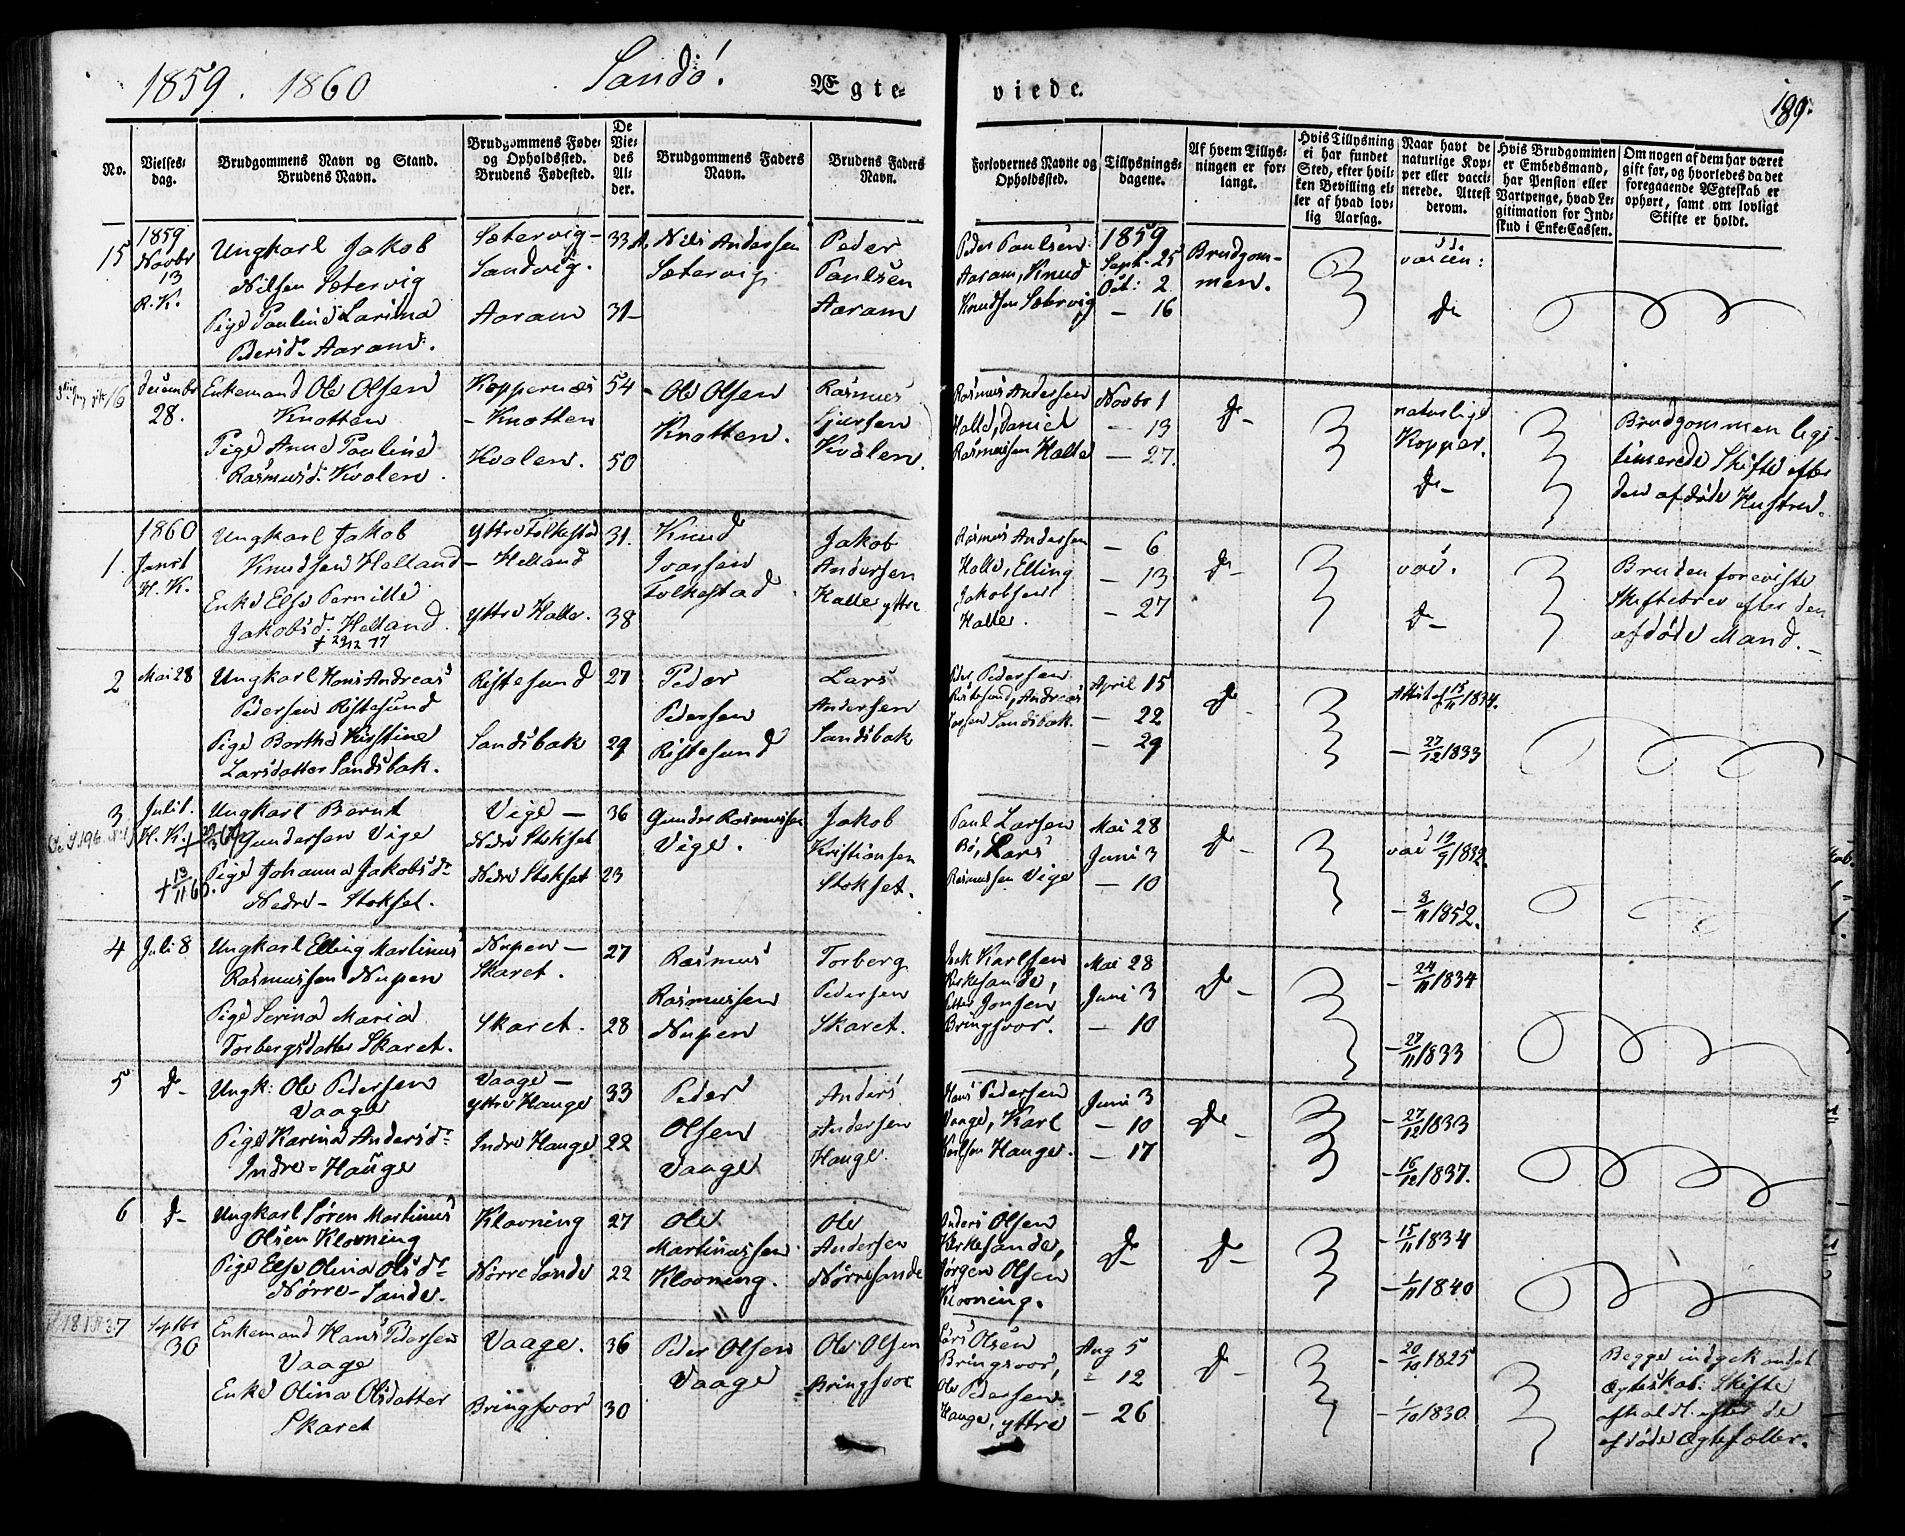 1859. 1860
Sandö.
Ægte-
viede.
189.
No.
Vielses-
dag.
Brudgommens Navn og Stand.
Brudens Navn.
Brudgommens Føde-
og Opholdssted.
Brudens Fødested.
De
Vie-
des
Al-
der.
Brudgommens Faders
Navn.
Brudens Faders
Navn.
Forlovernes Navne og
Opholdssted.
Tillysnings-
dagene.
Af hvem Tillys-
ningen er for-
langt.
Hvis Tillysning
ei har fundet
Sted, efter hvil-
ken Bevilling el-
ler af hvad lov-
lig Aarsag.
Naar havt de
naturlige Kop-
per eller vacci-
nerede. Attest
derom.
Hvis Brudgommen
er Embedsmand,
har Pension eller
Vartpenge, hvad Le-
gitimation for Ind-
skud i Enke-Cassen.
Om nogen af dem har været
gift før, og hvorledes da det
foregaaende Ægteskab er
ophørt, samt om lovligt
Skifte er holdt.
15
1859
Novbr
13
R. K.
Ungkarl Jakob
Nilsen Sætervig
Pige Pauline Larina
Pedersd. Aaram.
Sætervig-
Sandvig.
Aaram
33
31-
Nils Andersen
Sætervig
Peder
Paulsen
Aaram
Peder Paulsen
Aaram, Knud
Knudsen Sætervig
1859
Sept. 25
Oct: 2
- 16
Brudgom-
men.
vaccin:
Do
16
Decembr
28.
Enkemand Ole Olsen
Knotten
Pige Anne Pauline
Rasmusd. Kvalen.
Koppernæs
- Knotten
Kvalen.
54
50
Ole Olsen
Knotten.
Rasmus
Sjursen
Kvalen.
Rasmus Andersen
Halle, Daniel
Rasmussen Halle
Novbr 1
- 13
- 27.
Do -
naturlige
Kopper.
Do -
Brudgommen legi-
timerede Skifte efter
den afdøde Hustru.
1.
1860
Jan. 1
H. K.
Ungkarl Jakob
Knudsen Helland
Enke Else Pernille
Jakobsd. Helland.
+ 29/12 77
Yttre Folkestad
- Helland
Yttre Halle.
31.
38
Knud
Ivarsen
Folkestad
Jakob
Andersen
Halle yttre
Rasmus Andersen
Halle, Elling
Jakobsen
Halle.
- 6
- 13
- 27
Do -
vac.
Do -
Bruden foreviste
Skiftebrev efter den
afdøde Mand.-
2
Mai 28
Ungkarl Hans Andreas
Pedersen Ristesund
Pige Barthe Kirstine
Larsdatter Sandsbak.
Ristesund
Sandsbak
27
29
Peder
Pedersen
Ristesund
Lars
Andersen
Sandsbak
Peder Pedersen
Ristesund, Andreas
Larsen Sandsbak.
April 15
- 22
- 29
Do -
Attest af 15/11 1834.
- 27/12 1833
3
Juli 1.
H. K.
+ 13/11 60.
Ungkarl Bernt
Gundersen Vige
Pige Johanna Jakobsdr
Nedre-Stokset.
Vige -
Nedre Stokset
Nedre Stokset
36
23
Gunder Rasmussen
Vige.
Jakob
Kristiansen
Stokset.
Paul Larsen
Bø, Lars
Rasmussen Vige
Mai 28
Juni 3
- 10
Do -
vac 19/9 1832.
- 3/11 1852.
4
Juli 8
Ungkarl Elling Martinus
Rasmussen Nupen
Pige Serina Maria
Torbergsdatter Skaret.
Nupen -
Skaret.
Skaret.
27
28
Rasmus
Rasmussen
Nupen
Torberg
Pedersen
Skaret.
Karlsen
Kirkesande,
Petter Jonsen
Bringsvor.
Mai 28
Juni 3
- 10
Do -
- 24/11 1834
- 27/11 1833
5
Do -
Ungk: Ole Pedersen
Vaage
Pige Karina Andersdr
Indre-Hauge
Vaage -
Yttre Hauge
Indre Hauge
33
22
Peder
Olsen
Vaage
Anders
Andersen
Hauge.
Hans Pedersen
Vaage, Karl
Karlsen Hauge.
Juni 3
- 10
- 17
Do -
- 27/12 1833
- 16/12 1837.
6
Do -
Ungkarl Søren Martinus
Olsen Klovning
Pige Else Olina Olsdr
Nørre-Sande.
Klovning
Nørre Sande
27
22
Ole
Martinussen
Klovning.
Ole
Andersen
Nørresande
Anders Olsen
Kirkesande,
Jørgen Olsen
Klovning.
Do -
Do -
- 15/11 1834
- 1/11 1840
7
Septbr
30
Enkemand Hans Pedersen
Vaage
Enke Olina Olsdatter
Skaret
Vaage.
Bringsvor
36
30
Peder Olsen
Vaage
Ole Olsen
Bringsvor
Lars Olsen
Bringsvor,
Ole Pedersen
Hauge, yttre
Aug 5
- 12
- 26
Do -
- 20/10 1825
- 1/10 1830.
Begge indgik andet
Ægteskab. Skifte
afholdt efter de
afdøde Ægtefæller.